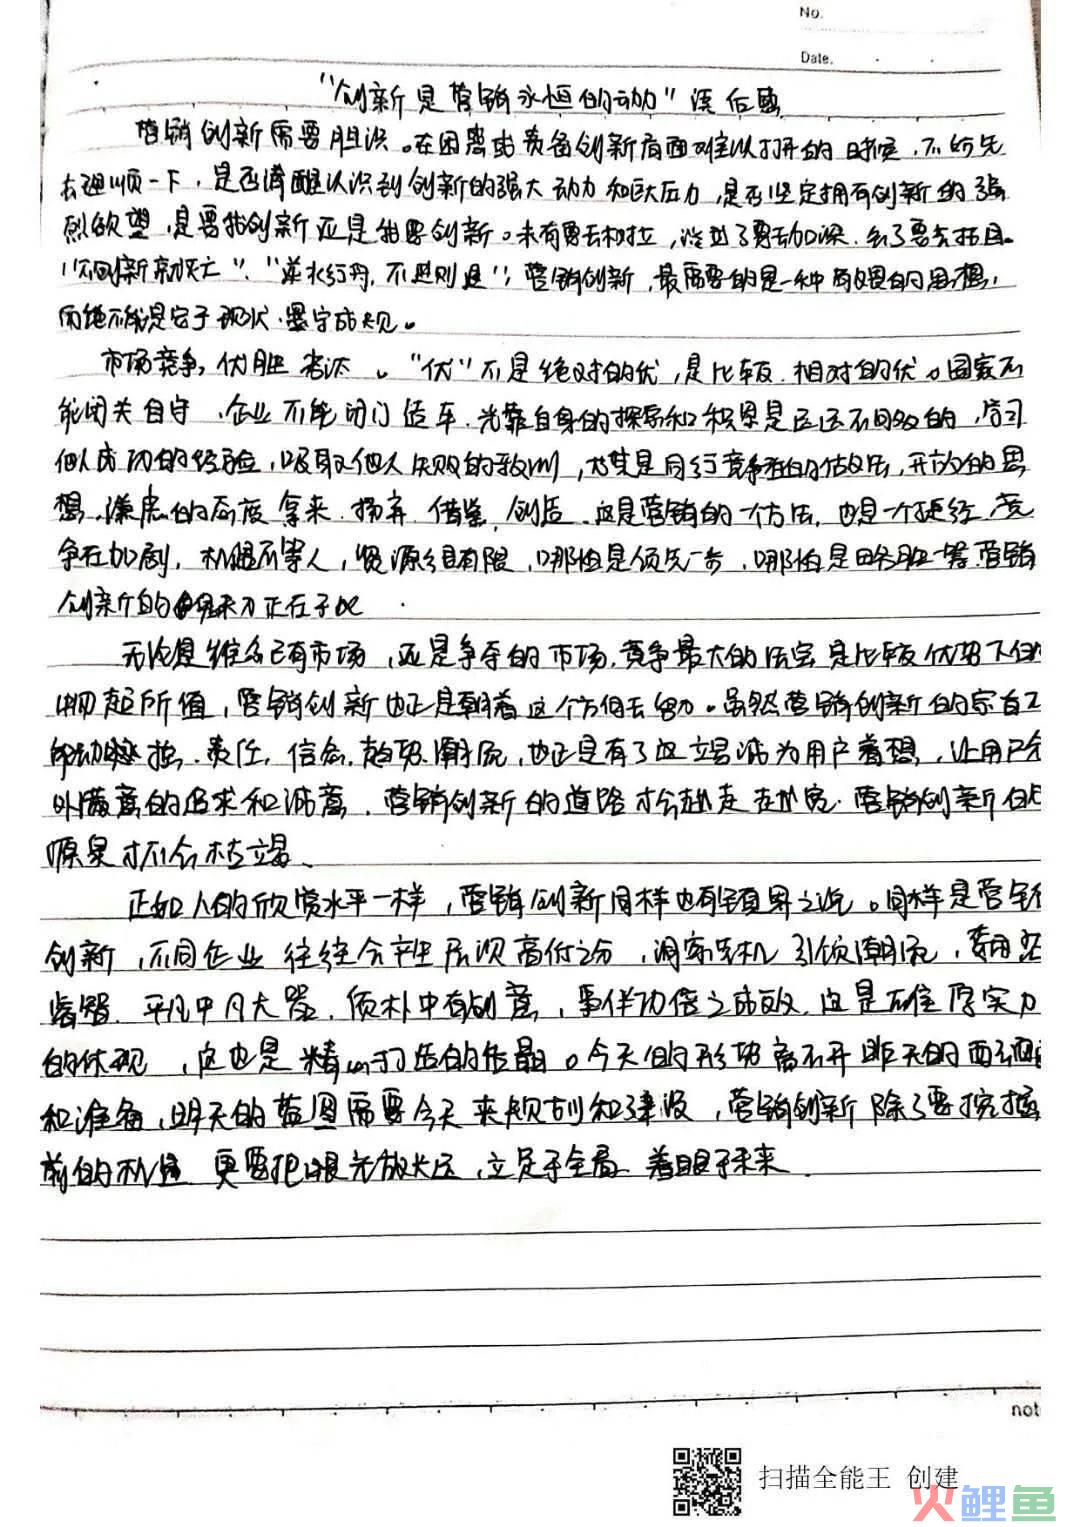 No.
Date.
"创新是营销永恒的动力"读后感
营销创新需要胆识。在困惑或责备创新局面难以打开的时候，不妨先
去理顺一下，是否清醒认识到创新的强大动力和巨大压力，是否坚定拥有创新的强
烈欲望，是要我创新还是我要创新。未有要去树立，淡了要去加深，
"不创新就灭亡"、"逆水行舟，不进则退"，营销创新，最需要的是一种的思想，
而绝不能是安于现状、墨守成规。
市场竞争，优胜劣汰。"优"不是绝对的优，是比较、相对的优。国家不
能闭关自守，企业不能闭门造车，光靠自身的探索和积累是远远不够的，学习
他人成功的经验，吸取他人失败的教训，尤其是同行竞争的做法，开放的思
想、谦虚的态度，拿来、扬弃、借鉴、创造，这是营销的一个方法，也是一个捷径，竞
争在加剧，机遇不等人，资源很有限，哪怕是领先一步，哪怕是略胜一筹，营销
创新的魅力正在于此
无论是维系已有市场，还是争夺的市场，竞争最大的法宝是比较优势下的
物超所值，营销创新也正是朝着这个方向去努力。虽然营销创新的宗旨不
责任、信念、趋势、潮流，也正是有了这竭诚为用户着想，让用户
外满意的追求和诚意，营销创新的道路才会越走越宽，营销创新的
源泉才不会枯竭、
正如人的欣赏水平一样，营销创新同样也有境界之说。同样是营销
创新，不同企业往往会产生层次高低之分，洞察先机，引领潮流，
睿智，平凡中见大器，质朴中有创意，事半功倍之成效，这是雄厚实力
的体现，这也是精心打造的结晶。今天的形势离不开昨天的
和准备，明天的蓝图需要今天来规划和建设，营销创新除了要挖掘
前的机遇，更要把眼光放长远，立足于全局，着眼于未来。
not
扫描全能王 创建
火鲤鱼